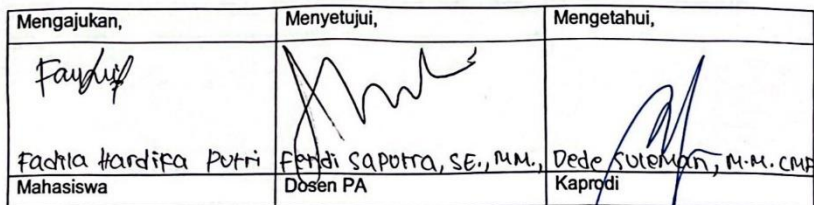 Mengajukan, Menyetujui, Mengetahui,
Fadila Hardifa Putri Fendi Saputra, SE., MM., Dede Suleman, M.M. CMP
Mahasiswa Dosen PA Kaprodi